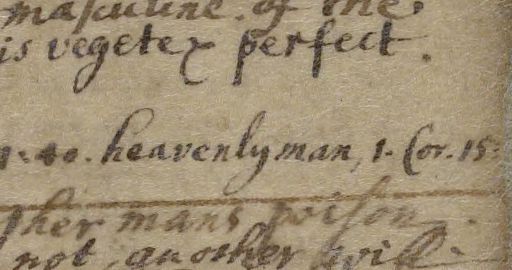 masculine. of the
is vegetex perfect.
40. heavenly man, 1. Cor. 15:
ther mans poison.
not another will